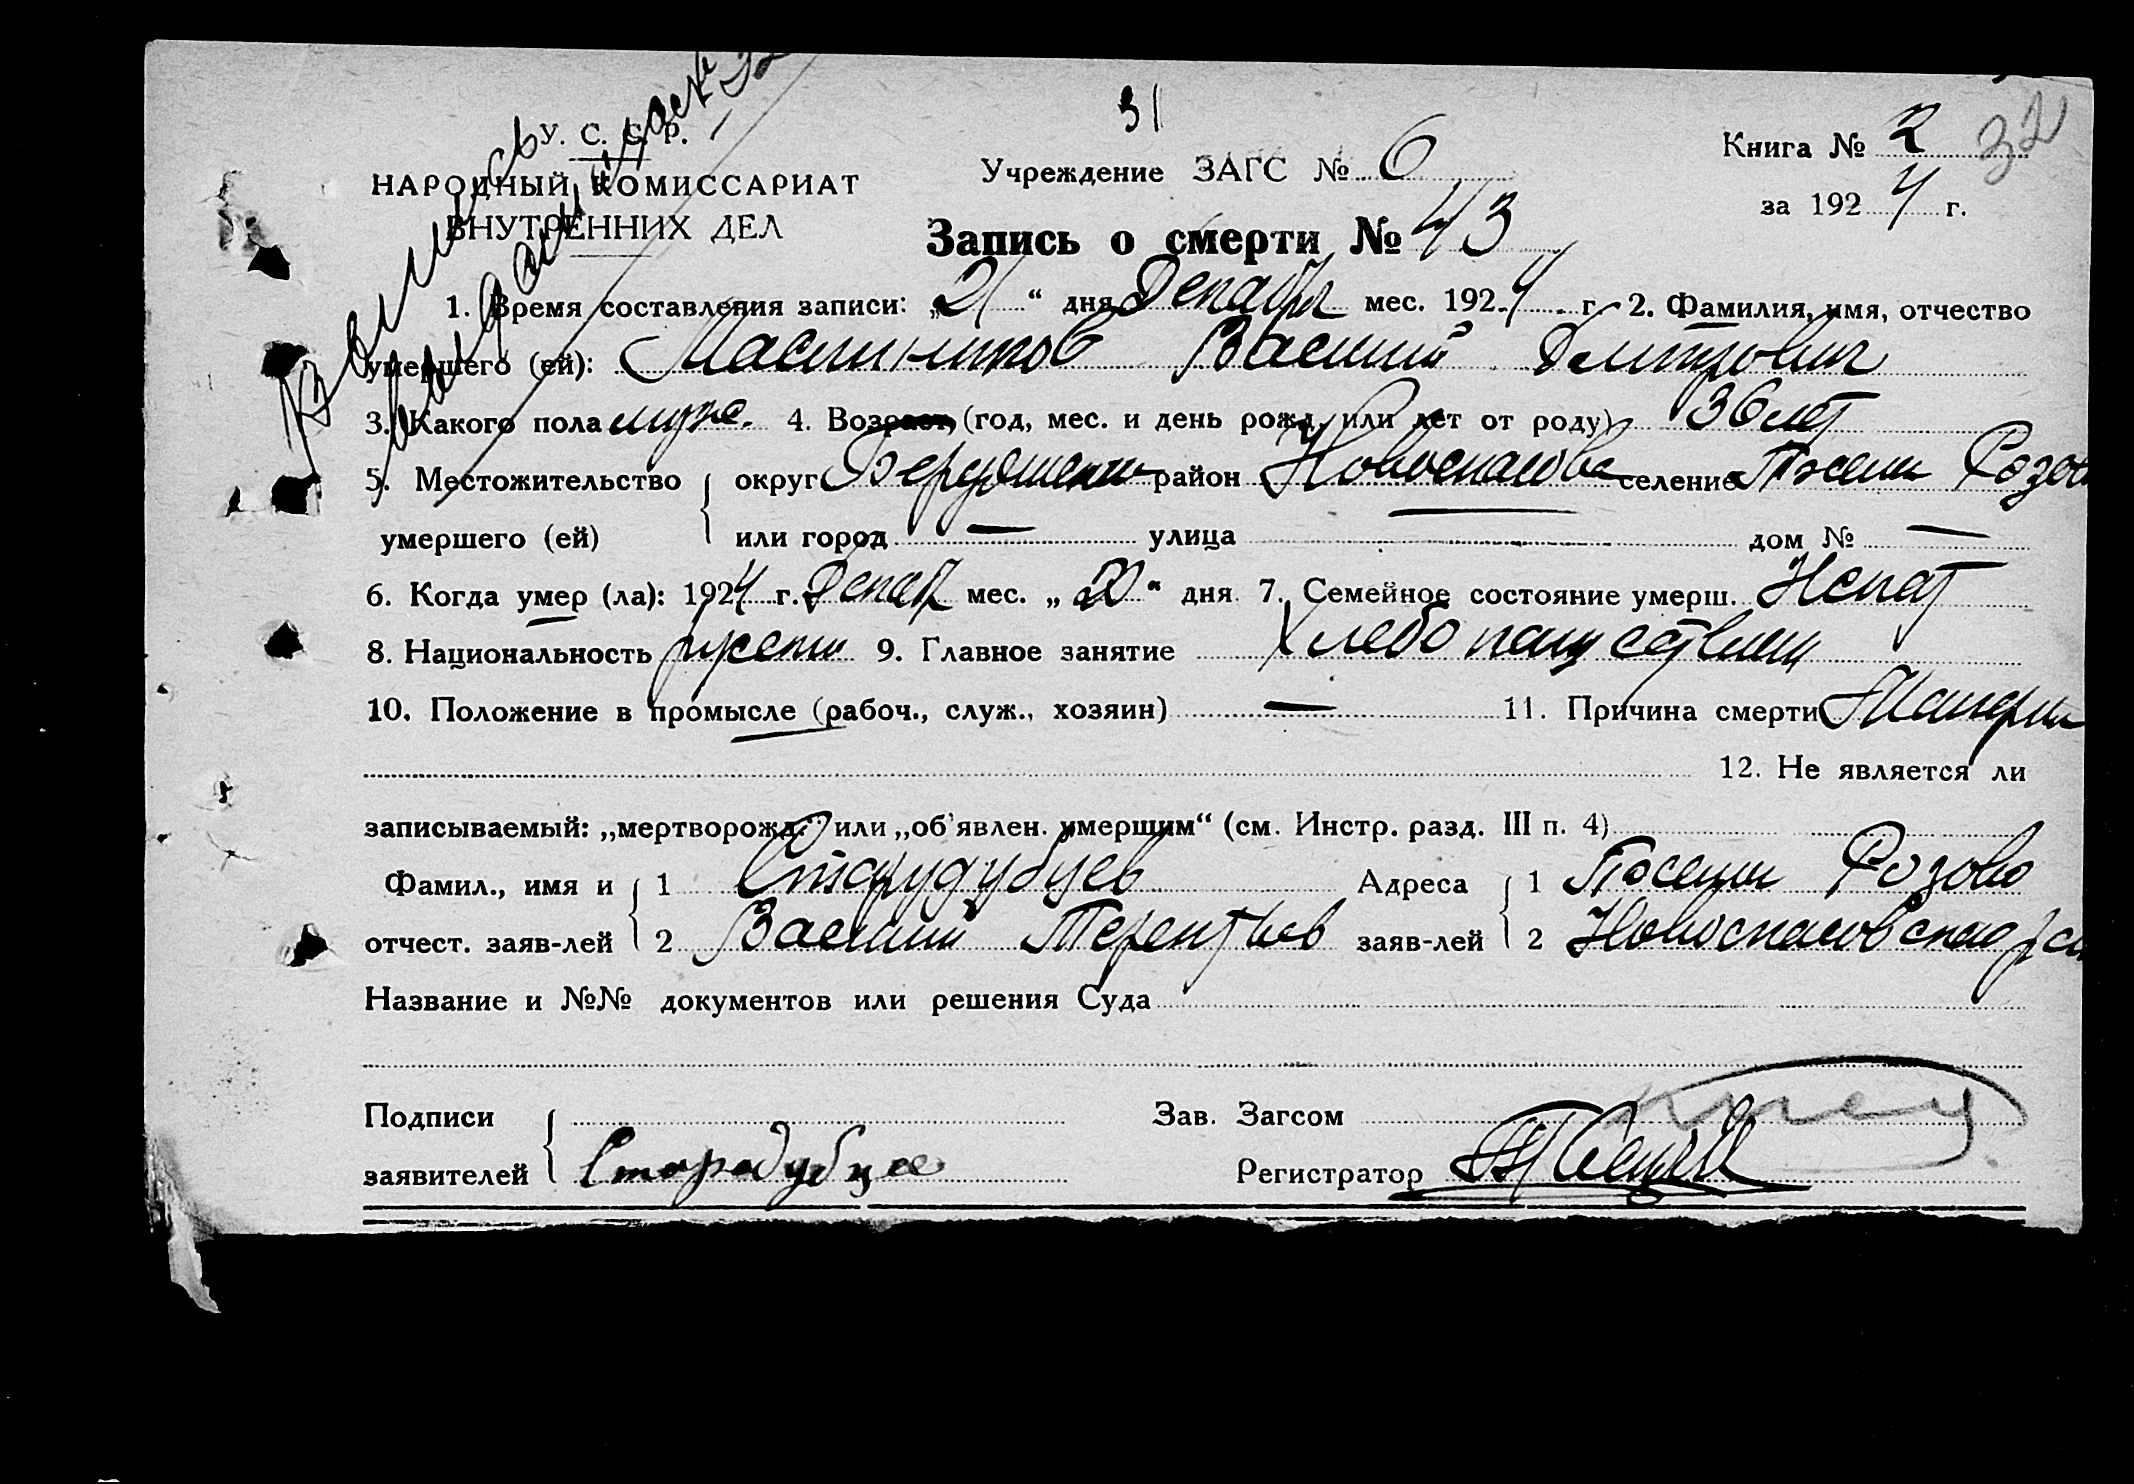 31
32
У. С. С. Р.
НАРОДНЫЙ КОМИССАРИАТ
ВНУТРЕННИХ ДЕЛ
Учреждение ЗАГС № 6
Книга № 2
за 1924 г.
Запись о смерти № 43
1. Время составления записи: „21“ дня Декабр мес. 1924 г. 2. Фамилия, имя, отчество
умершего (ей): Василий Дмитрович
3. Какого пола мужс. 4. Возраст, (год, мес. и день рожд. или лет от роду) 36 лет
5. Местожительство округ район Новоспасов селение
умершего (ей) или город — улица — дом № —
6. Когда умер (ла): 1924 г. Декаб мес. „20“ дня. 7. Семейное состояние умерш. Женат
8. Национальность 9. Главное занятие
10. Положение в промысле (рабоч., служ., хозяин) — 11. Причина смерти
12. Не является ли
записываемый: „мертворожд.“ или „об'явлен. умершим“ (см. Инстр. разд. III п. 4)
Фамил., имя и 1 Старудубцев Адреса 1 Розово
отчест. заяв-лей 2 Василий Терентьев заяв-лей 2
Название и №№ документов или решения Суда
Подписи Зав. Загсом
заявителей Стародубцев Регистратор